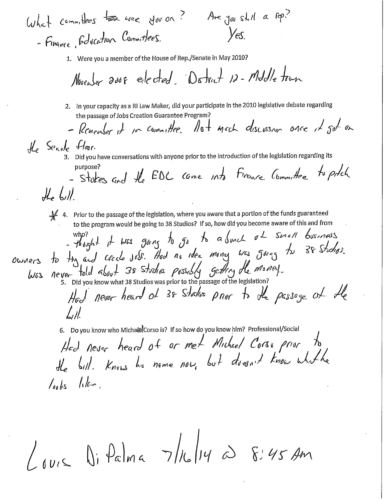 What committees were you on? Are you still a rep?
- Finance, Education Committees. Yes.
1. Were you a member of the House of Rep./Senate in May 2010?
November 2008 elected. District 12 - Middletown
2. In your capacity as a RI Law Maker, did your participate in the 2010 legislative debate regarding
the passage of Jobs Creation Guarantee Program?
- Remember it in committee. Not much discussion once it got on
the Senate floor.
3. Did you have conversations with anyone prior to the introduction of the legislation regarding its
purpose?
- Stokes and the EDC came into Finance Committee to pitch
the bill.
* 4. Prior to the passage of the legislation, where you aware that a portion of the funds guaranteed
to the program would be going to 38 Studios? If so, how did you become aware of this and from
who?
- thought it was going to go to a bunch of small business
owners to try and create jobs. Had no idea money was going to 38 Studios.
Was never told about 38 Studios possibly getting the money.
5. Did you know what 38 Studios was prior to the passage of the legislation?
Had never heard of 38 Studios prior to the passage of the
bill.
6. Do you know who Michael Corso is? If so how do you know him? Professional/Social
Had never heard of or met Michael Corso prior to
the bill. Knows his name now, but doesn't know what he
looks like.
Louis DiPalma 7/16/14 @ 8:45 AM